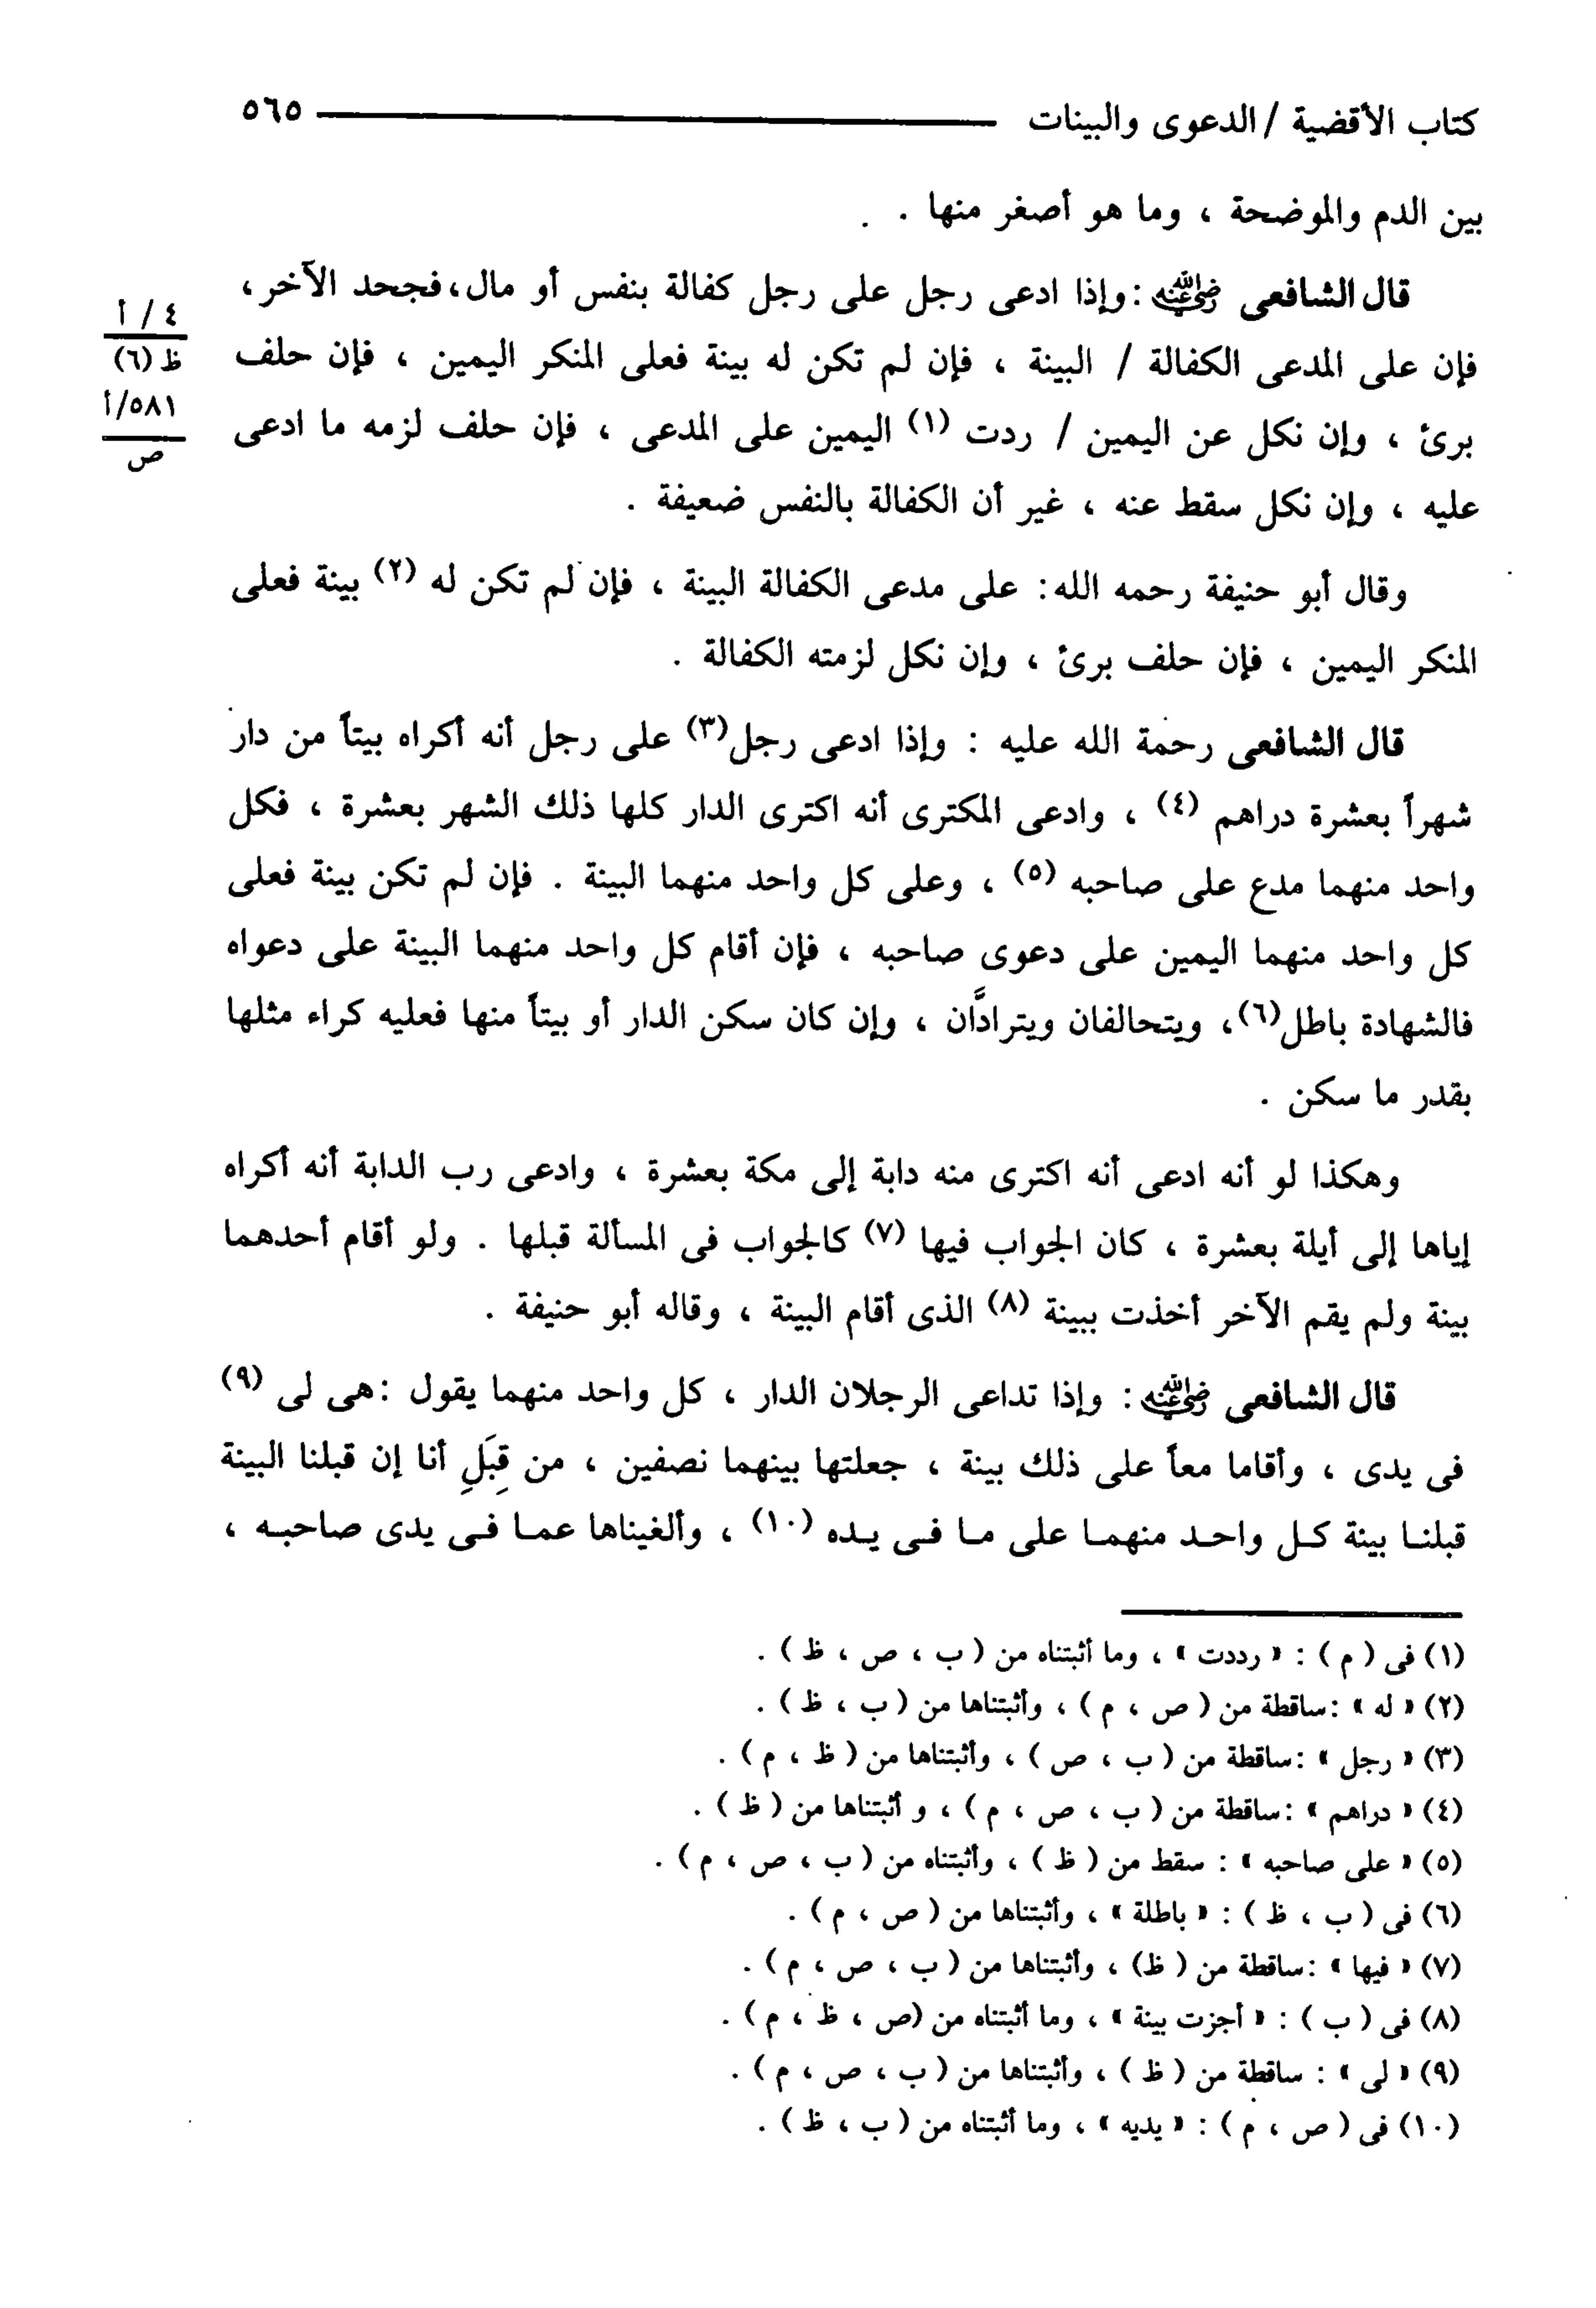 كتاب الأقضية / الدعوى والبينات ٥٦٥
بين الدم والموضحة ، وما هو أصغر منها .
قال الشافعى رضي الله عنه : وإذا ادعى رجل على رجل كفالة بنفس أو مال، فجحد الآخر ،
فإن على المدعى الكفالة / البينة ، فإن لم تكن له بينة فعلى المنكر اليمين ، فإن حلف
برئ ، وإن نكل عن اليمين / ردت (١) اليمين على المدعى ، فإن حلف لزمه ما ادعى
عليه ، وإن نكل سقط عنه ، غير أن الكفالة بالنفس ضعيفة .
٤ / أ
ظ (٦)
٥٨١/أ
ص
وقال أبو حنيفة رحمه الله : على مدعى الكفالة البينة ، فإن لم تكن له (٢) بينة فعلى
المنكر اليمين ، فإن حلف برئ ، وإن نكل لزمته الكفالة .
قال الشافعى رحمة الله عليه : وإذا ادعى رجل(٣) على رجل أنه أكراه بيتاً من دار
شهراً بعشرة دراهم (٤) ، وادعى المكترى أنه اكترى الدار كلها ذلك الشهر بعشرة ، فكل
واحد منهما مدع على صاحبه (٥) ، وعلى كل واحد منهما البينة . فإن لم تكن بينة فعلى
كل واحد منهما اليمين على دعوى صاحبه ، فإن أقام كل واحد منهما البينة على دعواه
فالشهادة باطل(٦) ، ويتحالفان ويترادَّان ، وإن كان سكن الدار أو بيتاً منها فعليه كراء مثلها
بقدر ما سكن .
وهكذا لو أنه ادعى أنه اكترى منه دابة إلى مكة بعشرة ، وادعى رب الدابة أنه أكراه
إياها إلى أيلة بعشرة ، كان الجواب فيها (٧) كالجواب فى المسألة قبلها . ولو أقام أحدهما
بينة ولم يقم الآخر أخذت ببينة (٨) الذى أقام البينة ، وقاله أبو حنيفة .
قال الشافعى رضي الله عنه : وإذا تداعى الرجلان الدار ، كل واحد منهما يقول : هى لى (٩)
فى يدى ، وأقاما معاً على ذلك بينة ، جعلتها بينهما نصفين ، من قِبَلِ أنا إن قبلنا البينة
قبلنا بينة كل واحد منهما على ما فى يده (١٠) ، وألغيناها عما فى يدى صاحبه ،
(١) فى ( م ) : « رددت » ، وما أثبتناه من ( ب ، ص ، ظ ) .
(٢) « له » : ساقطة من ( ص ، م ) ، وأثبتناها من ( ب ، ظ ) .
(٣) « رجل » : ساقطة من ( ب ، ص ) ، وأثبتناها من ( ظ ، م ) .
(٤) « دراهم » : ساقطة من ( ب ، ص ، م ) ، و أثبتناها من ( ظ ) .
(٥) « على صاحبه » : سقط من ( ظ ) ، وأثبتناه من ( ب ، ص ، م ) .
(٦) فى ( ب ، ظ ) : « باطلة » ، وأثبتناها من ( ص ، م ) .
(٧) « فيها » : ساقطة من ( ظ) ، وأثبتناها من ( ب ، ص ، م ) .
(٨) فى ( ب ) : « أجزت بينة » ، وما أثبتناه من (ص ، ظ ، م ) .
(٩) « لى » : ساقطة من ( ظ ) ، وأثبتناها من ( ب ، ص ، م ) .
(١٠) فى ( ص ، م ) : « يديه » ، وما أثبتناه من ( ب ، ظ ) .